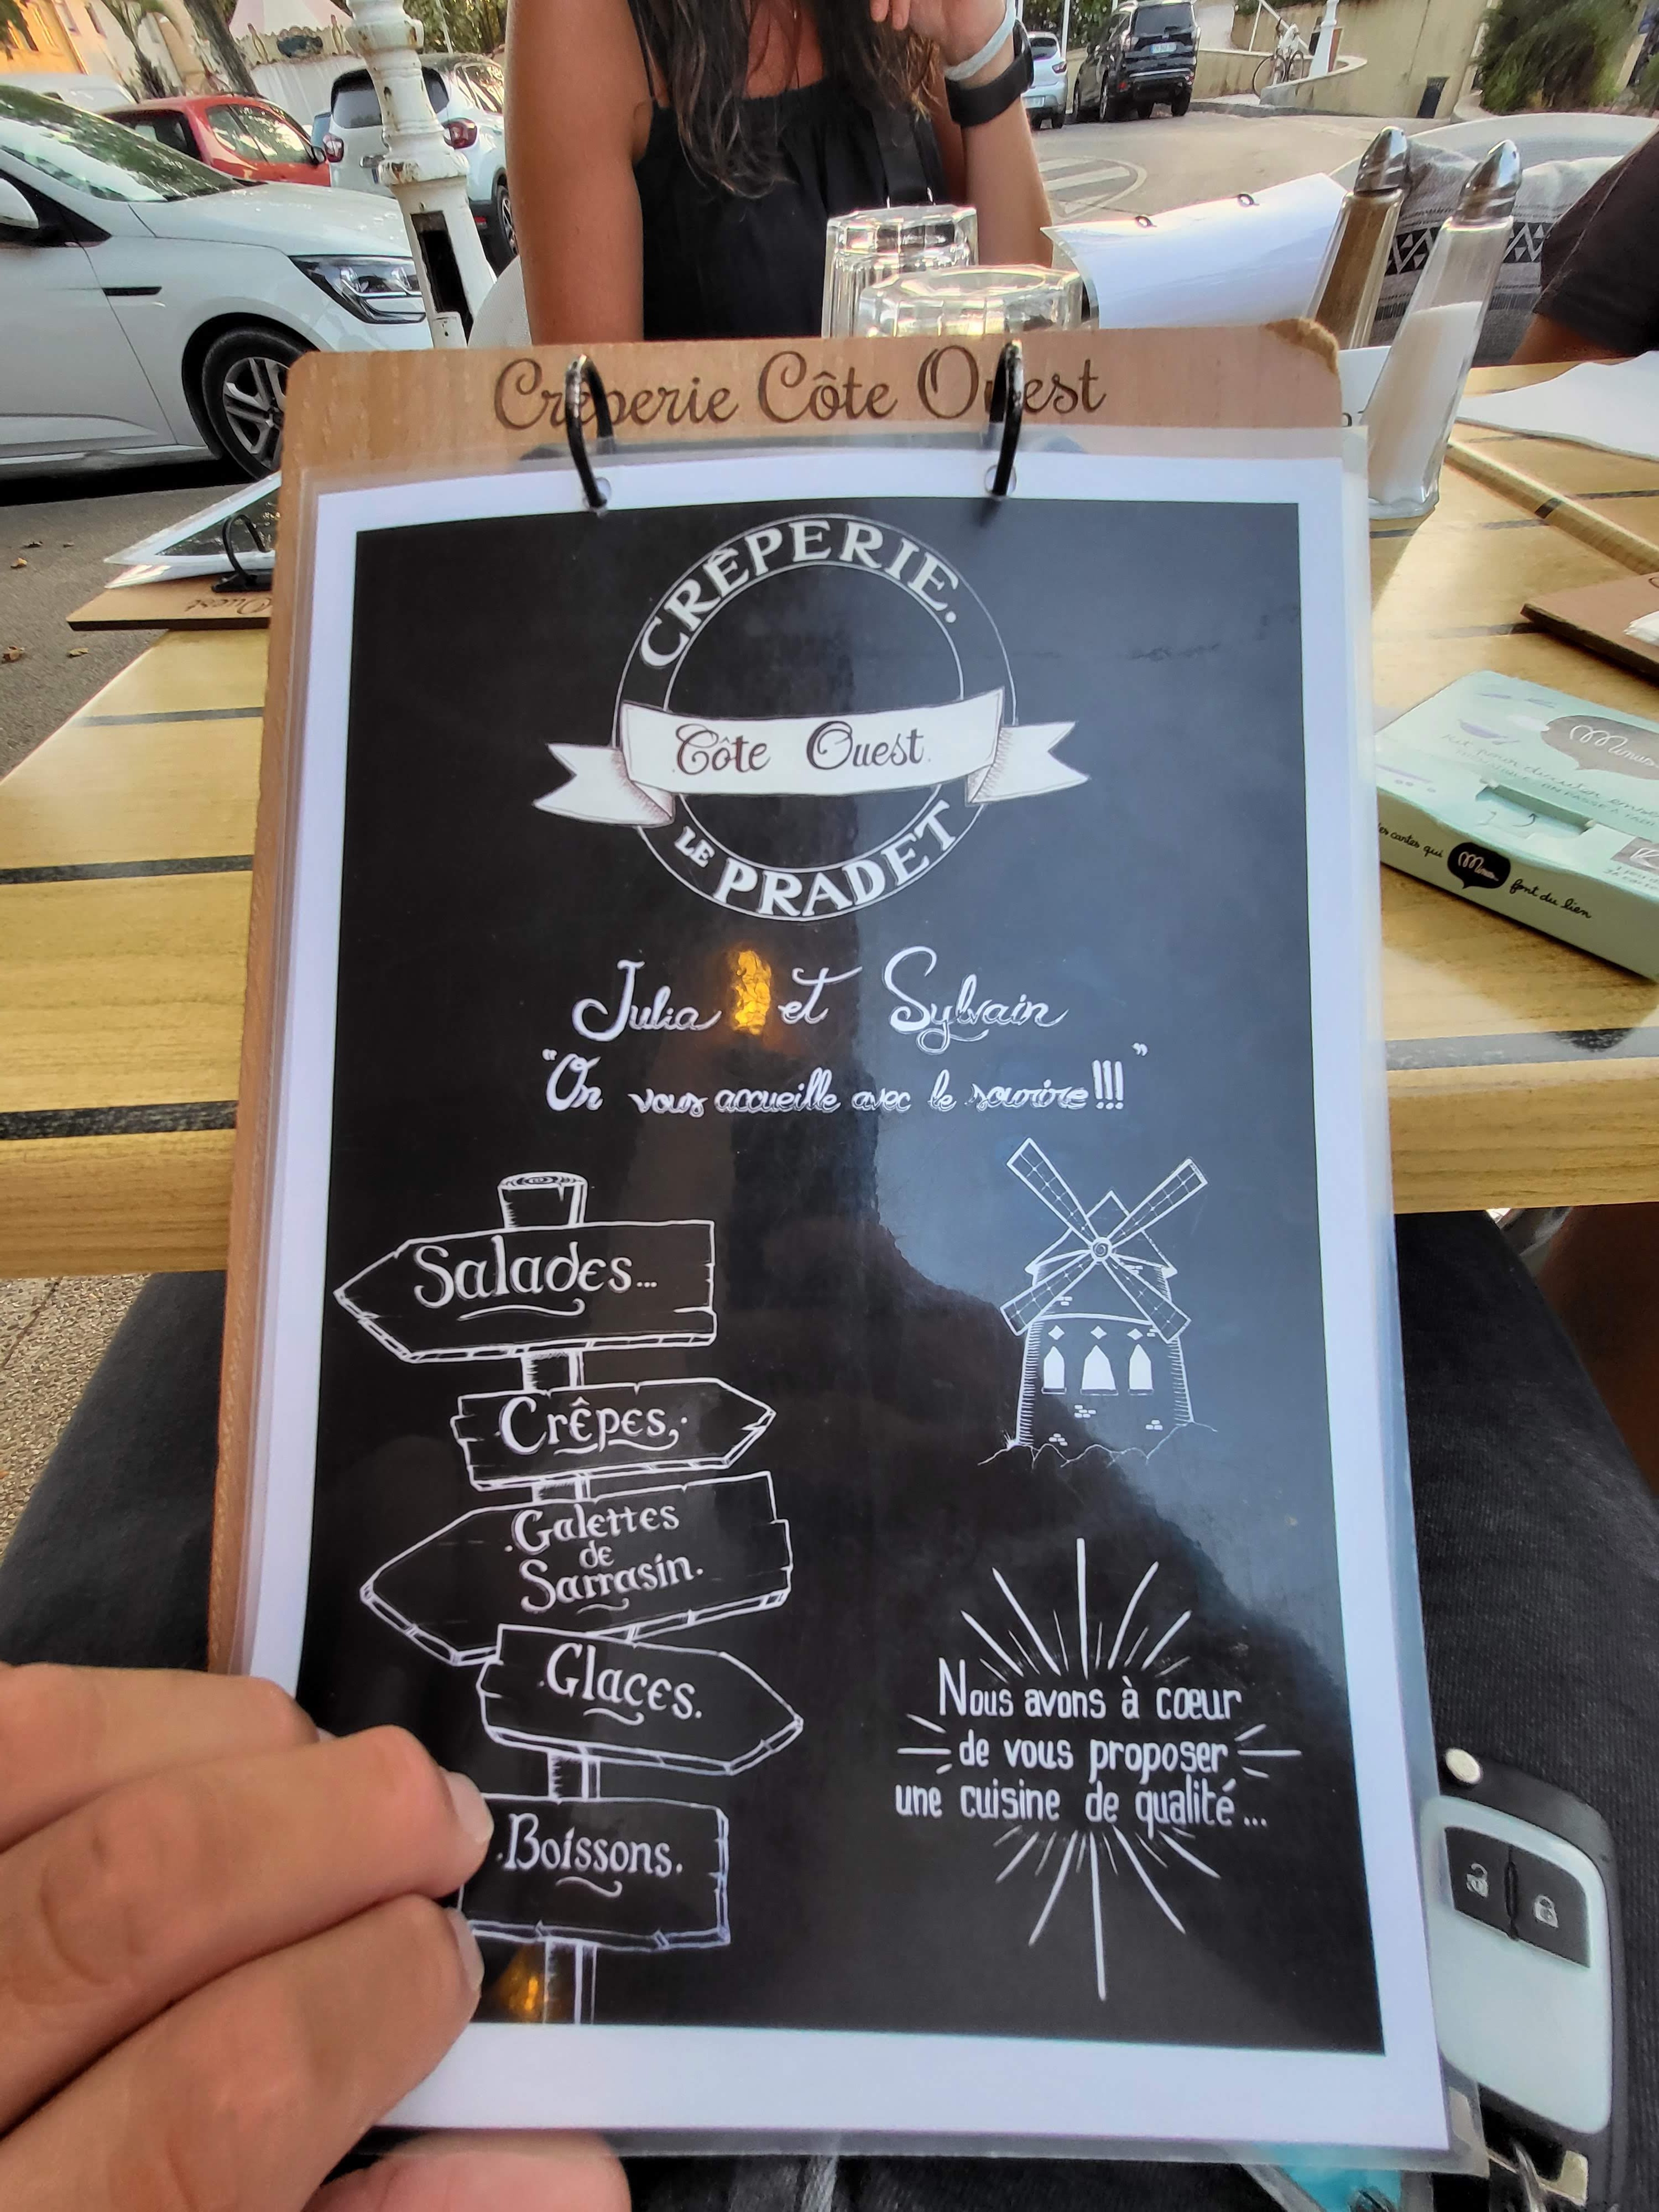 Crêperie Côte Ouest
CRÊPERIE.
Côte Ouest.
LE PRADET
Julia et Sylvain
"On vous accueille avec le sourire!!!"
Salades...
Crêpes
.Galettes
de
Sarrasin.
.Glaces.
.Boissons.
Nous avons à cœur
de vous proposer
une cuisine de qualité...
Ouest
Minus
les cartes qui
font du lien